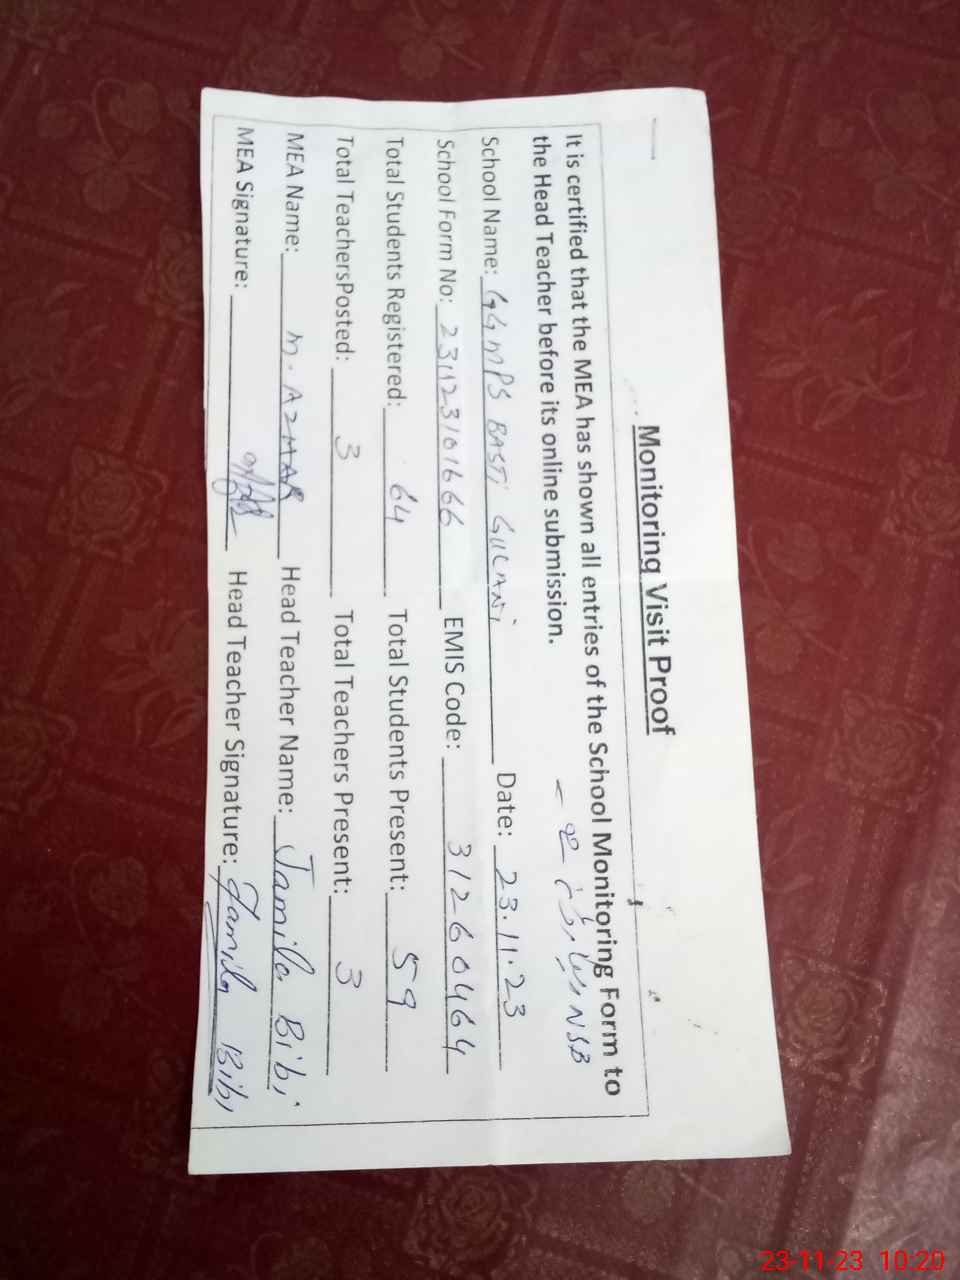 Monitoring Visit Proof
It is certified that the MEA has shown all entries of the School Monitoring Form to
the Head Teacher before its online submission.
NSB
School Name: GGMPS BASTI GULANI Date: 23.11.23
School Form No: 231123101666 EMIS Code: 31260464
Total Students Registered: 64 Total Students Present: 59
Total TeachersPosted: 3 Total Teachers Present: 3
MEA Name: M. AZHAR Head Teacher Name: Jamila Bibi
MEA Signature: Head Teacher Signature: Jamila Bibi
23-11-23 10:20